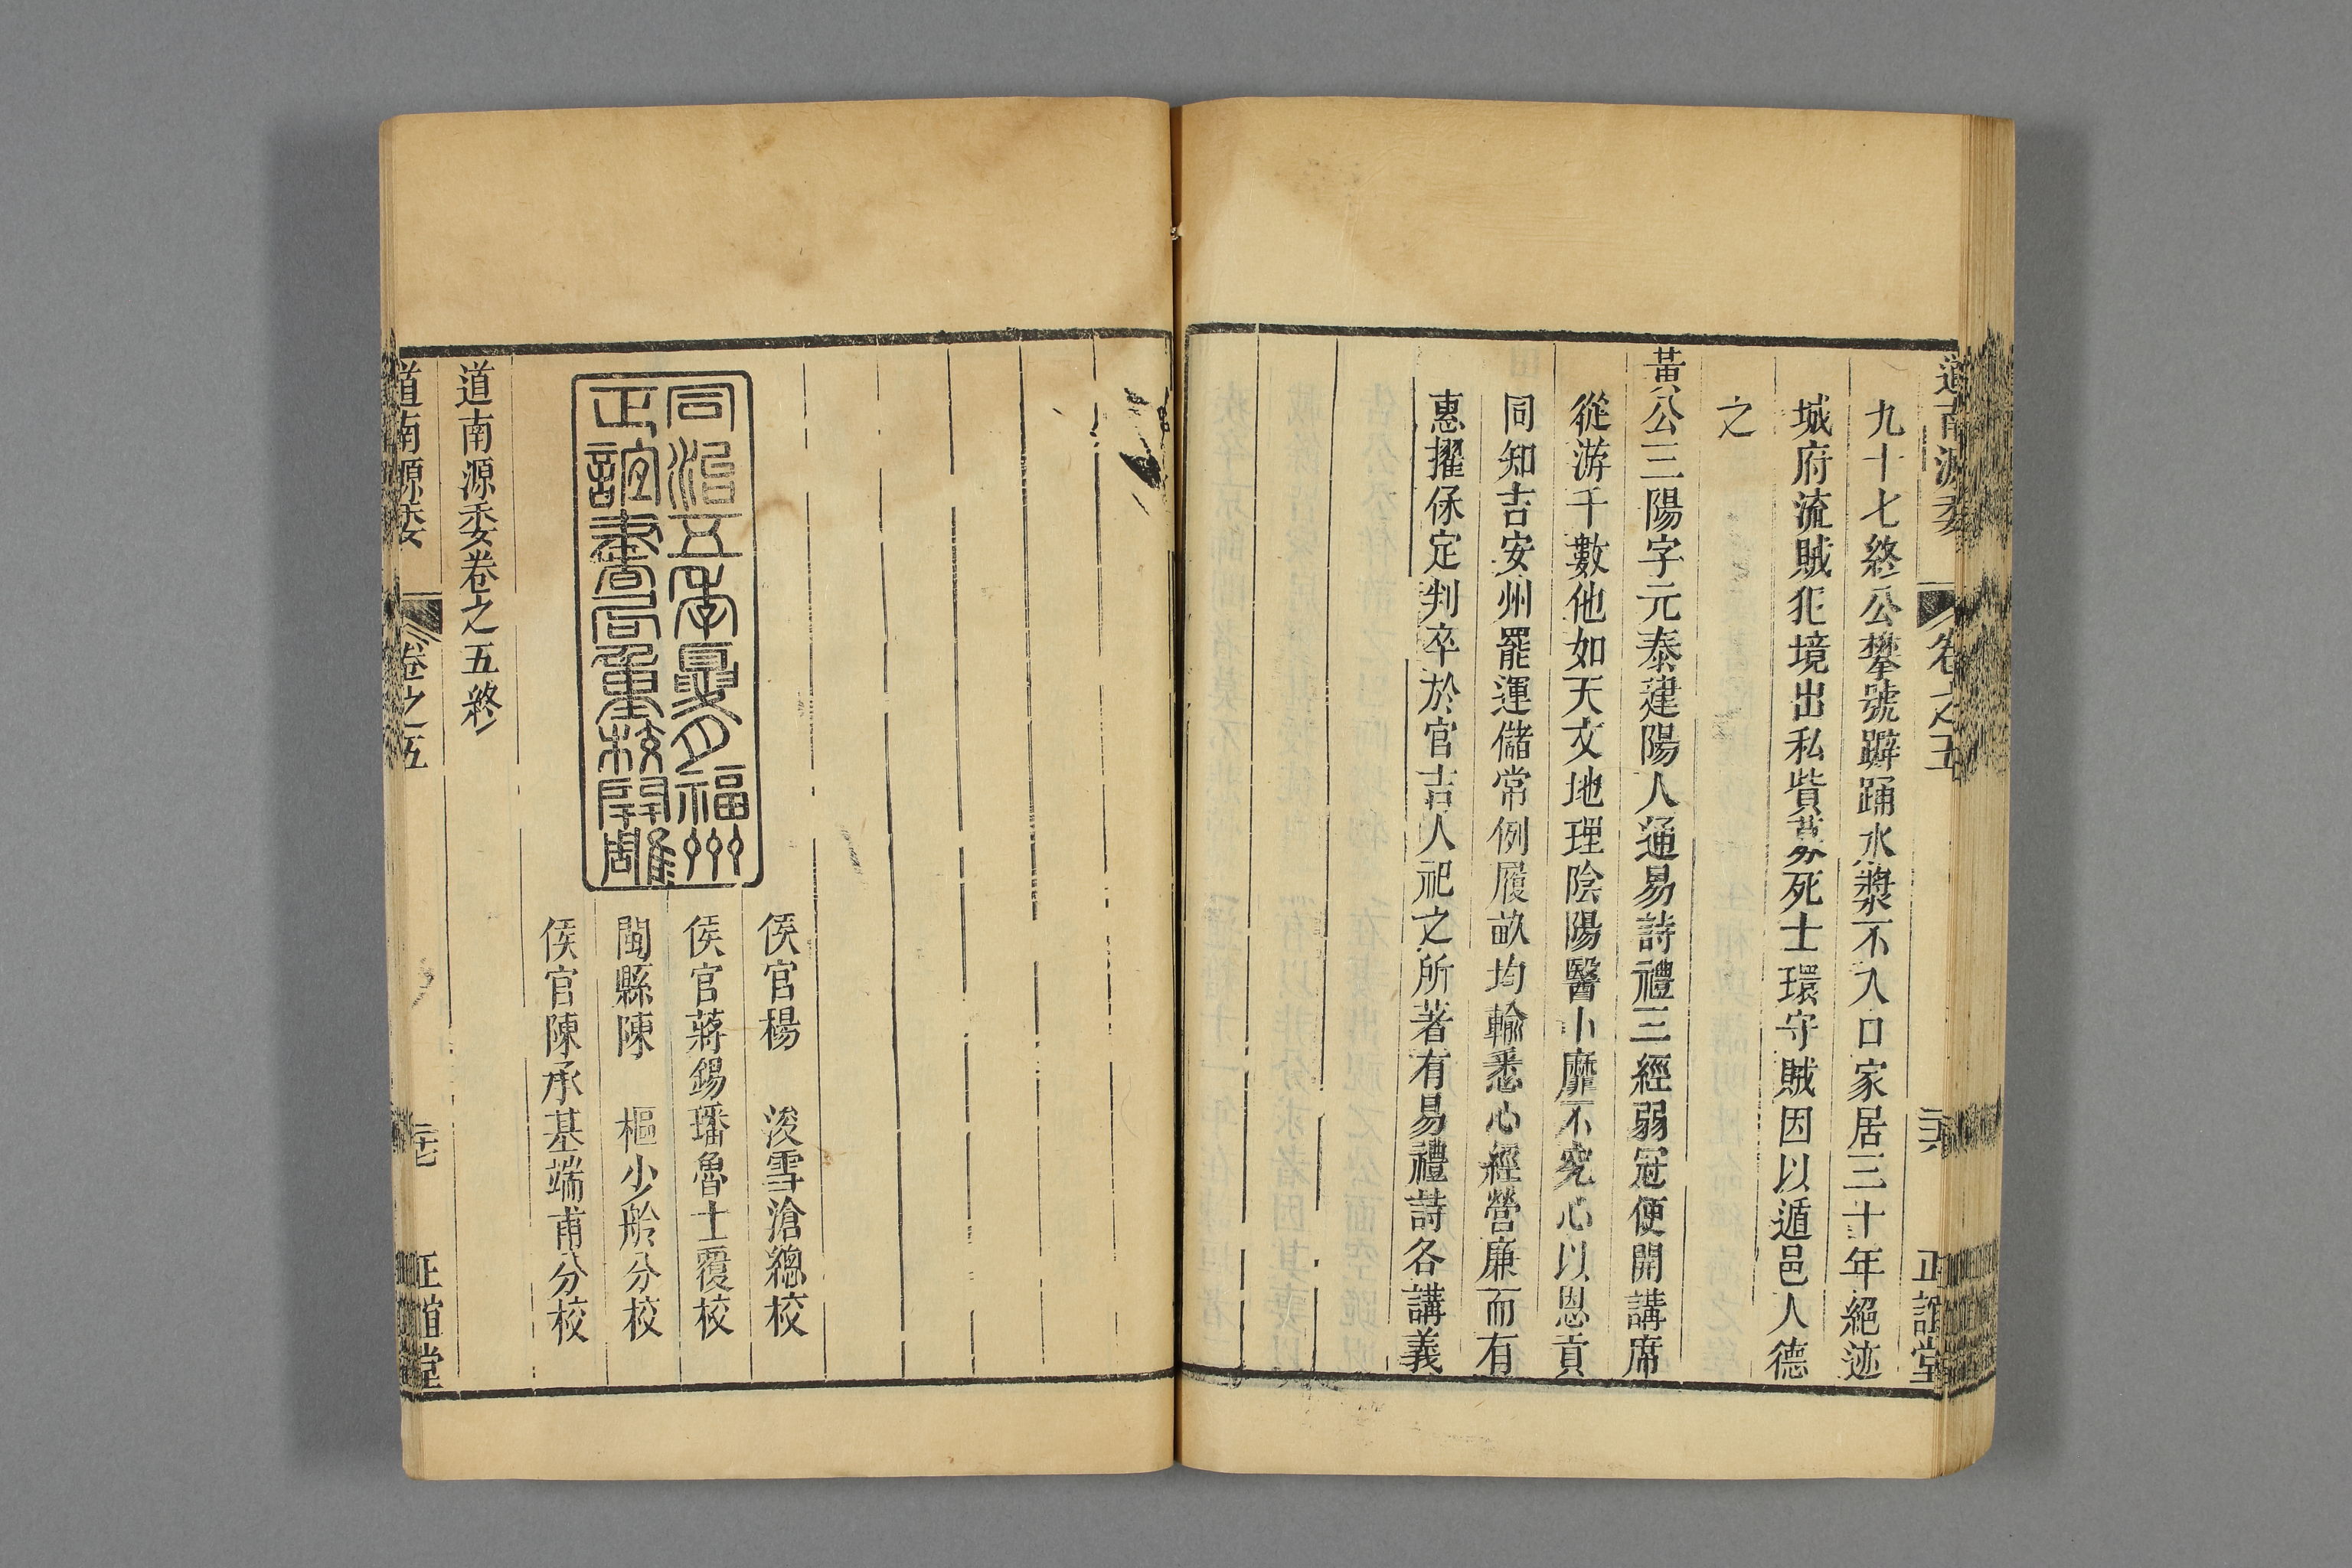 道南源委
卷之五
三六
正誼堂
九十七終公攀號躃踊水漿不入口家居三十年絕迹
城府流賊犯境出私貲募死士環守賊因以遁邑人德
之
黃公三陽字元泰建陽人通易詩禮三經弱冠便開講席
從游千數他如天文地理陰陽醫卜靡不究心以恩貢
同知吉安州罷運儲常例履畝均輸悉心經營廉而有
惠擢保定判卒於官吉人祀之所著有易禮詩各講義
同治五年夏月福州
正誼書局重校開雕
侯官楊 浚雪滄總校
侯官蔣錫璠魯士覆校
閩縣陳 樞少舲分校
侯官陳承基端甫分校
道南源委卷之五終
道南源委
卷之五
三七
正誼堂